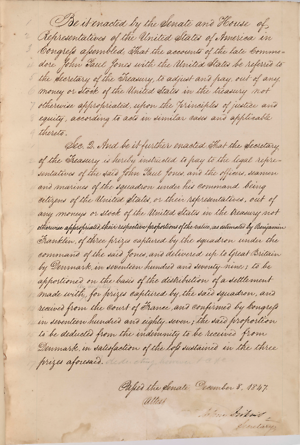 Be it enacted by the Senate and House of
Representatives of the United States of America in
Congress assembled, That the accounts of the late Commo-
dore John Paul Jones with the United States be referred to
the Secretary of the Treasury, to adjust and pay, out of any
money or Stock of the United States in the treasury not
otherwise appropriated, upon the principles of justice and
equity, according to acts in similar cases and applicable
thereto.
Sec. 2. And be it further enacted, That the Secretary
of the Treasury is hereby instructed to pay to the legal repre-
sentatives of the said John Paul Jones and the officers, seamen
and marines of the squadron under his command being
citizens of the United States, or their representatives, out of
any money or stock of the United States in the treasury not
otherwise appropriated, their respective proportions of the value, as estimated by Benjamin
Franklin, of three prizes captured by the squadron under the
command of the said Jones, and delivered up to Great Britain
by Denmark, in seventeen hundred and seventy-nine; to be
apportioned on the basis of the distribution of a settlement
made with, for prizes captured by, the said squadron, and
received from the Court of France, and confirmed by Congress
in seventeen hundred and eighty-seven; the said proportion
to be deducted from the indemnity to be received from
Denmark, in satisfaction of the loss sustained in the three
prizes aforesaid.
Passed the Senate, December 8, 1847.
Attest
Secretary